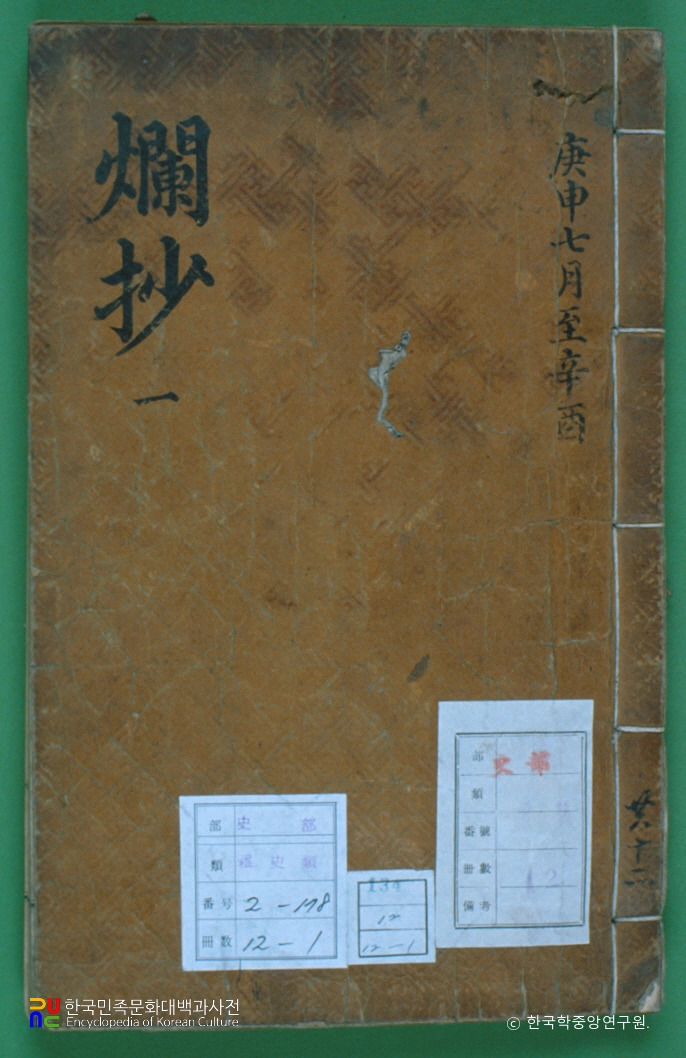 爛抄 一
庚申七月至辛酉
共十二
部 史部
類 雜史類
番号 2-178
冊数 12-1
134
12
12-1
部 史部
類
番號
冊數 12
備考
한국민족문화대백과사전
Encyclopedia of Korean Culture
ⓒ 한국학중앙연구원.